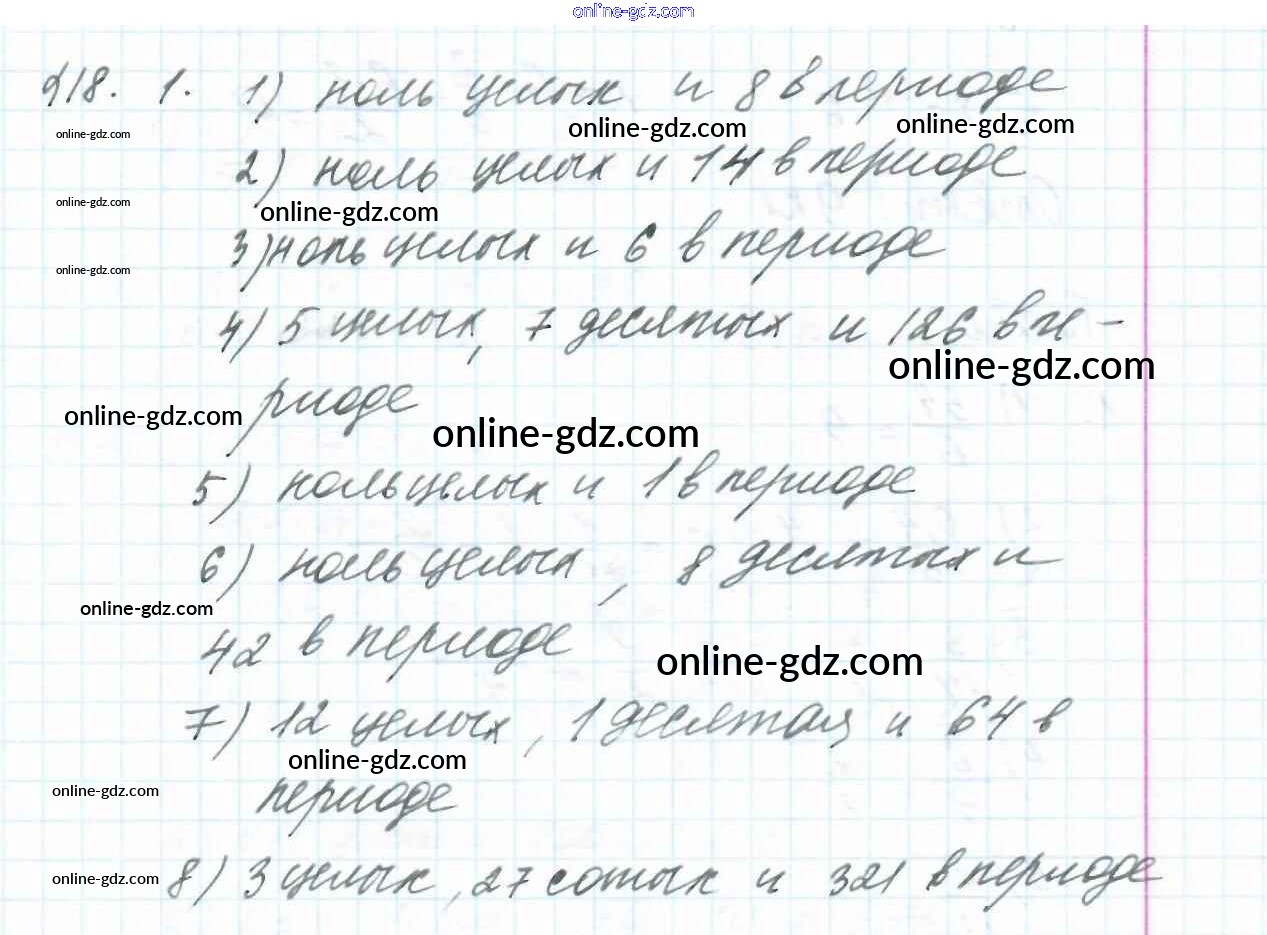 online-gdz.com
918. 1. 1) ноль целых и 8 в периоде
online-gdz.com online-gdz.com online-gdz.com
2) ноль целых и 14 в периоде
online-gdz.com online-gdz.com
3) ноль целых и 6 в периоде
online-gdz.com
4) 5 целых, 7 десятых и 126 в пе-
online-gdz.com
риоде
online-gdz.com online-gdz.com
5) ноль целых и 1 в периоде
6) ноль целых, 8 десятых и
online-gdz.com
42 в периоде
online-gdz.com
7) 12 целых, 1 десятая и 64 в
online-gdz.com
периоде
online-gdz.com
8) 3 целых, 27 сотых и 321 в периоде
online-gdz.com